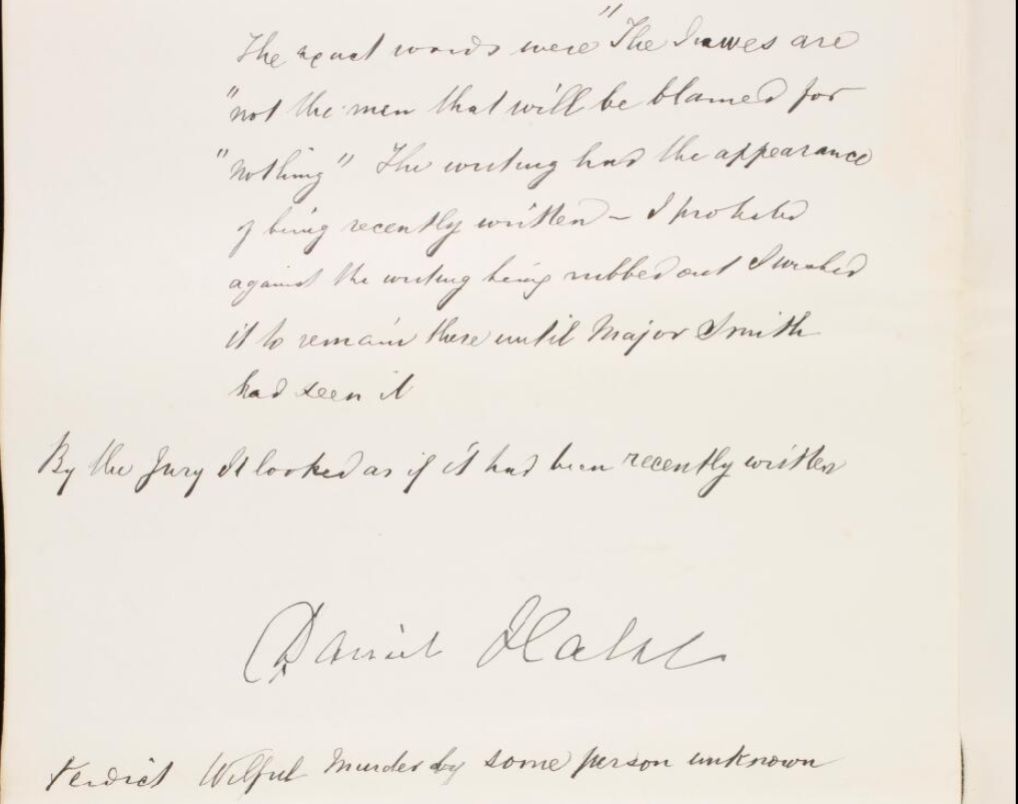 The exact words were "The Juwes are
"not the men that will be blamed for
"nothing" The writing had the appearance
of being recently written – I protested
against the writing being rubbed out I wished
it to remain there until Major Smith
had seen it
By the Jury It looked as if it had been recently written
Daniel Halse
Verdict Wilful Murder by some person unknown